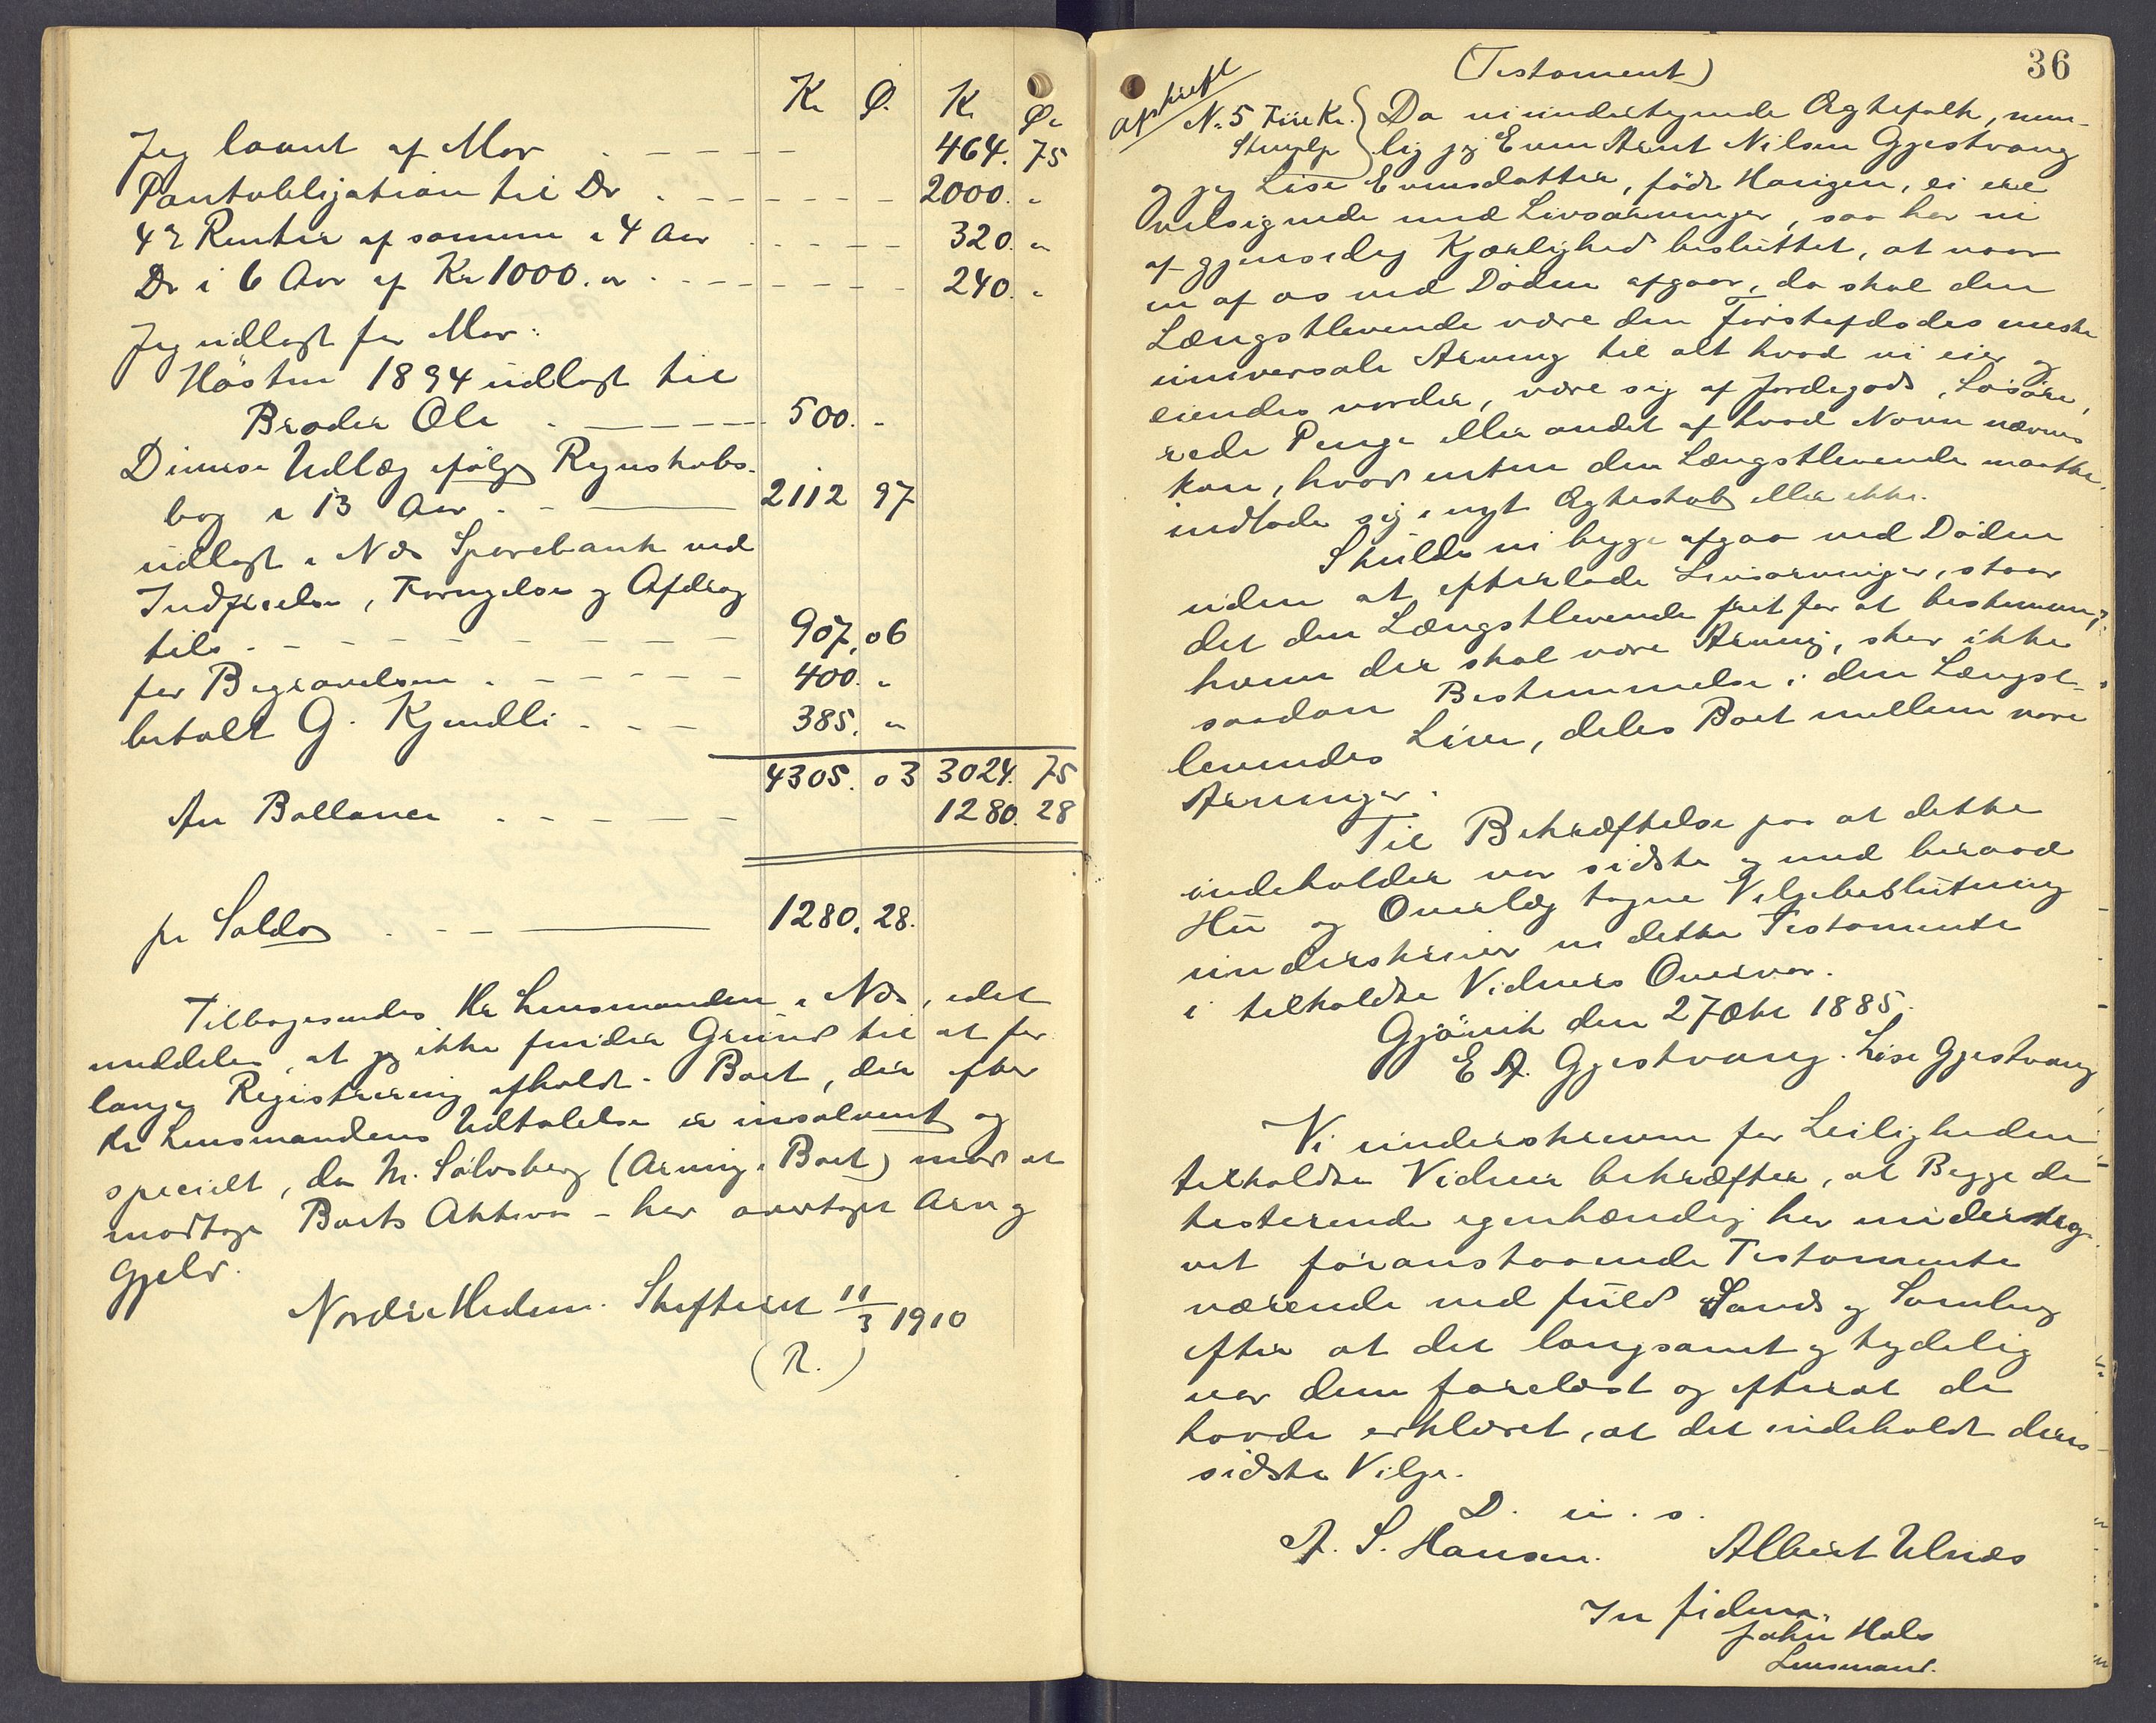 Kr Ø. Kr Ør
Jeg laant af Mor . - - - 464. 75
Pantobligation til Do . - - - 2000. "
4% Renter af samme i 4 Aar - - - 320. "
Do i 6 Aar af Kr 1000. " . - - - 240. "
Jeg udlagt for Mor:
Hösten 1894 udlagt til
Broder Ole . - - - 500. -
Diverse Udlæg ifölge Regnskabs-
bog i 13 Aar . - - 2112 97
udlagt i Næs Sparebank ved
Indfrielse, Fornyelse og Afdrag
tils . - - - 907,06
for Begravelsen . - - - 400. "
betalt G. Kjendli . - - 385. "
4305. 03 3024. 75
An Ballance . - - - 1280. 28
pr Saldo . - - - 1280. 28.
Tilbagesendes Hr Lensmanden i Næs, idet
meddeles, at jeg ikke finder Grund til at for
lange Registrering afholdt. Boet, der efter
Hr Lensmandens Udtalelse er insolvent og
specielt, da M. Sölvsberg (Arving i Boet) mod at
modtage Boets Aktiva - har overtaget Arv og
Gjeld.
Nordre Hedem. Skifteret 11/3 1910
(R.)
36
(Testament)
Afskrift
No 5 Fire Kr. } Da vi undertegnede Ægtefolk, nem-
Stempl. } lig jeg Even Arnt Nilsen Gjestvang
og jeg Lise Evensdatter, födt Hangen, ei ere
velsignede med Livsarvinger, saa har vi
af gjensidig Kjærlighed besluttet, at naar
en af os ved Döden afgaar, da skal den
Længstlevende være den Förstafdödes eneste
universale Arving til alt hvad vi eier og
eiendes vorder, være sig af Jordegods, Lösöre,
rede Penge eller andet af hvad Navn nævnes
kan, hvad enten den Længstlevende maatte
indlade sig i nyt Ægteskab eller ikke.
Skulde vi begge afgaa ved Döden
uden at efterlade Livsarvinger, staar
det den Længstlevende frit for at bestemme,
hvem der skal være Arving, sker ikke
saadan Bestemmelse i den Længst-
levendes Live, deles Boet mellem vore
Arvinger.
Til Bekræftelse paa at dette
indeholder vor sidste og med beraad
Hu og Overlæg tagne Viljebeslutning
underskriver vi dette Testamente
i tilkaldte Vidners Overvær.
Gjövik den 27 Okt 1885.
E A. Gjestvang. Lise Gjestvang
Vi underskrevne for Leiligheden
tilkaldte Vidner bekræfter, at Begge de
testerende egenhændig har underteg-
net foranstaaende Testamente
værende ved fuld Sands og Samling
efter at det langsamt og tydelig
var dem forelæst og efterat de
havde erklæret, at det indeholdt deres
sidste Vilje.
D. u. s.
A. S. Hansen. Albert Ulnæs
In fidem.
John Hals
Lensmand.